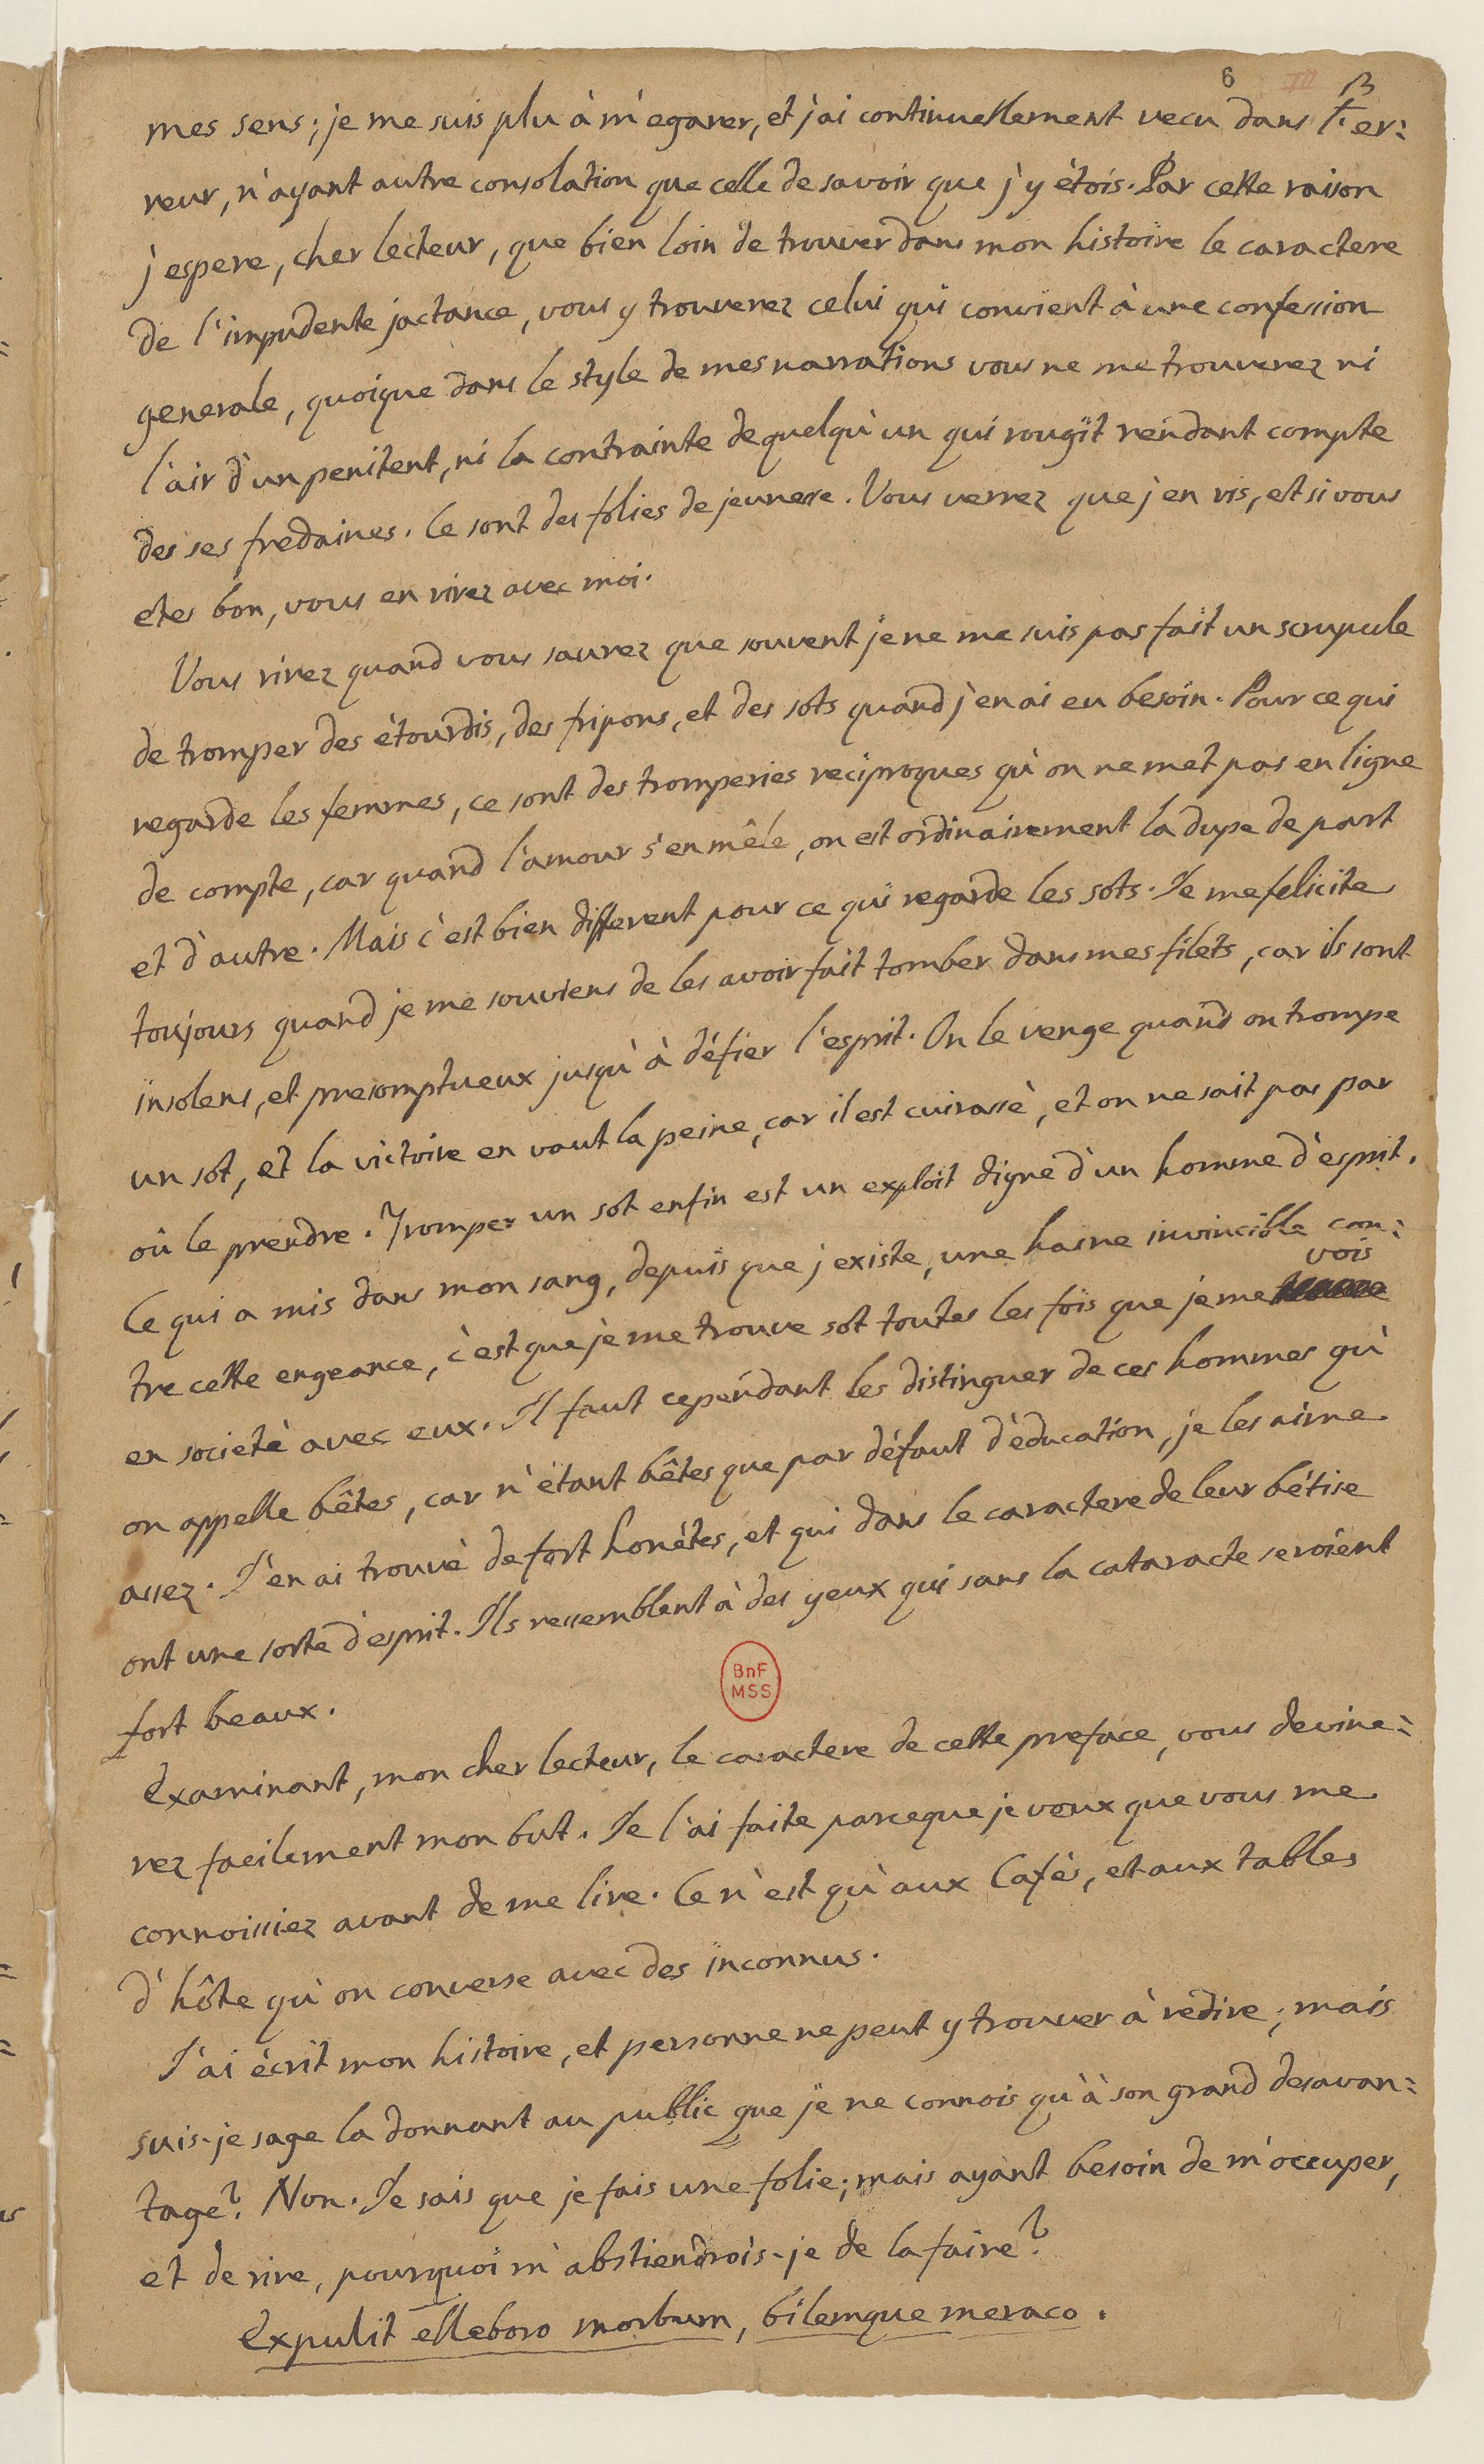 6
mes sens; je me suis plu à m'egarer, et j'ai continuellement vecu dans l'er=
reur, n'ayant autre consolation que celle de savoir que j'y ètois. Par cette raison
j'espere, cher lecteur, que bien loin de trouver dans mon histoire le caractere
de l'impudente jactance, vous y trouverez celui qui convient à une confession
generale, quoique dans le style de mes narrations vous ne me trouverez ni
l'air d'un penitent, ni la contrainte de quelqu'un qui rougit rendant compte
des ses fredaines. Ce sont des folies de jeunesse. Vous verrez que j'en ris, et si vous
etes bon, vous en rirez avec moi.
Vous rirez quand vous saurez que souvent je ne me suis pas fait un scrupule
de tromper des ètourdis, des fripons, et des sots quand j'en ai eu besoin. Pour ce qui
regarde les femmes, ce sont des tromperies reciproques qu'on ne met pas en ligne
de compte, car quand l'amour s'en mêle, on est ordinairement la dupe de part
et d'autre. Mais c'est bien different pour ce qui regarde les sots. Je me felicite
toujours quand je me souviens de les avoir fait tomber dans mes filets, car ils sont
insolens, et presomptueux jusqu'à défier l'esprit. On le venge quand on trompe
un sot, et la victoire en vaut la peine, car il est cuirassè, et on ne sait pas par
où le prendre. Tromper un sot enfin est un exploit digne d'un homme d'esprit.
Ce qui a mis dans mon sang, depuis que j'existe, une haine invincible con=
tre cette engeance, c'est que je me trouve sot toutes les fois que je me vois
en societè avec eux. Il faut cependant les distinguer de ces hommes qu'
on appelle bêtes, car n'étant bêtes que par défaut d'èducation, je les aime
assez. J'en ai trouvè de fort honètes, et qui dans le caractere de leur bétise
ont une sorte d'esprit. Ils ressemblent à des yeux qui sans la cataracte seroient
fort beaux.
BnF
MSS
Examinant, mon cher lecteur, le caractere de cette preface, vous devine=
rez facilement mon but. Je l'ai faite parceque je veux que vous me
connoissiez avant de me lire. Ce n'est qu'aux Cafès, et aux tables
d'hôte qu'on converse avec des inconnus.
J'ai ècrit mon histoire, et personne ne peut y trouver à redire; mais
suis-je sage la donnant au public que je ne connois qu'à son grand desavan=
tage? Non. Je sais que je fais une folie; mais ayant besoin de m'occuper,
et de rire, pourquoi m'abstiendrois-je de la faire?
Expulit elleboro morbum, bilemque meraco.